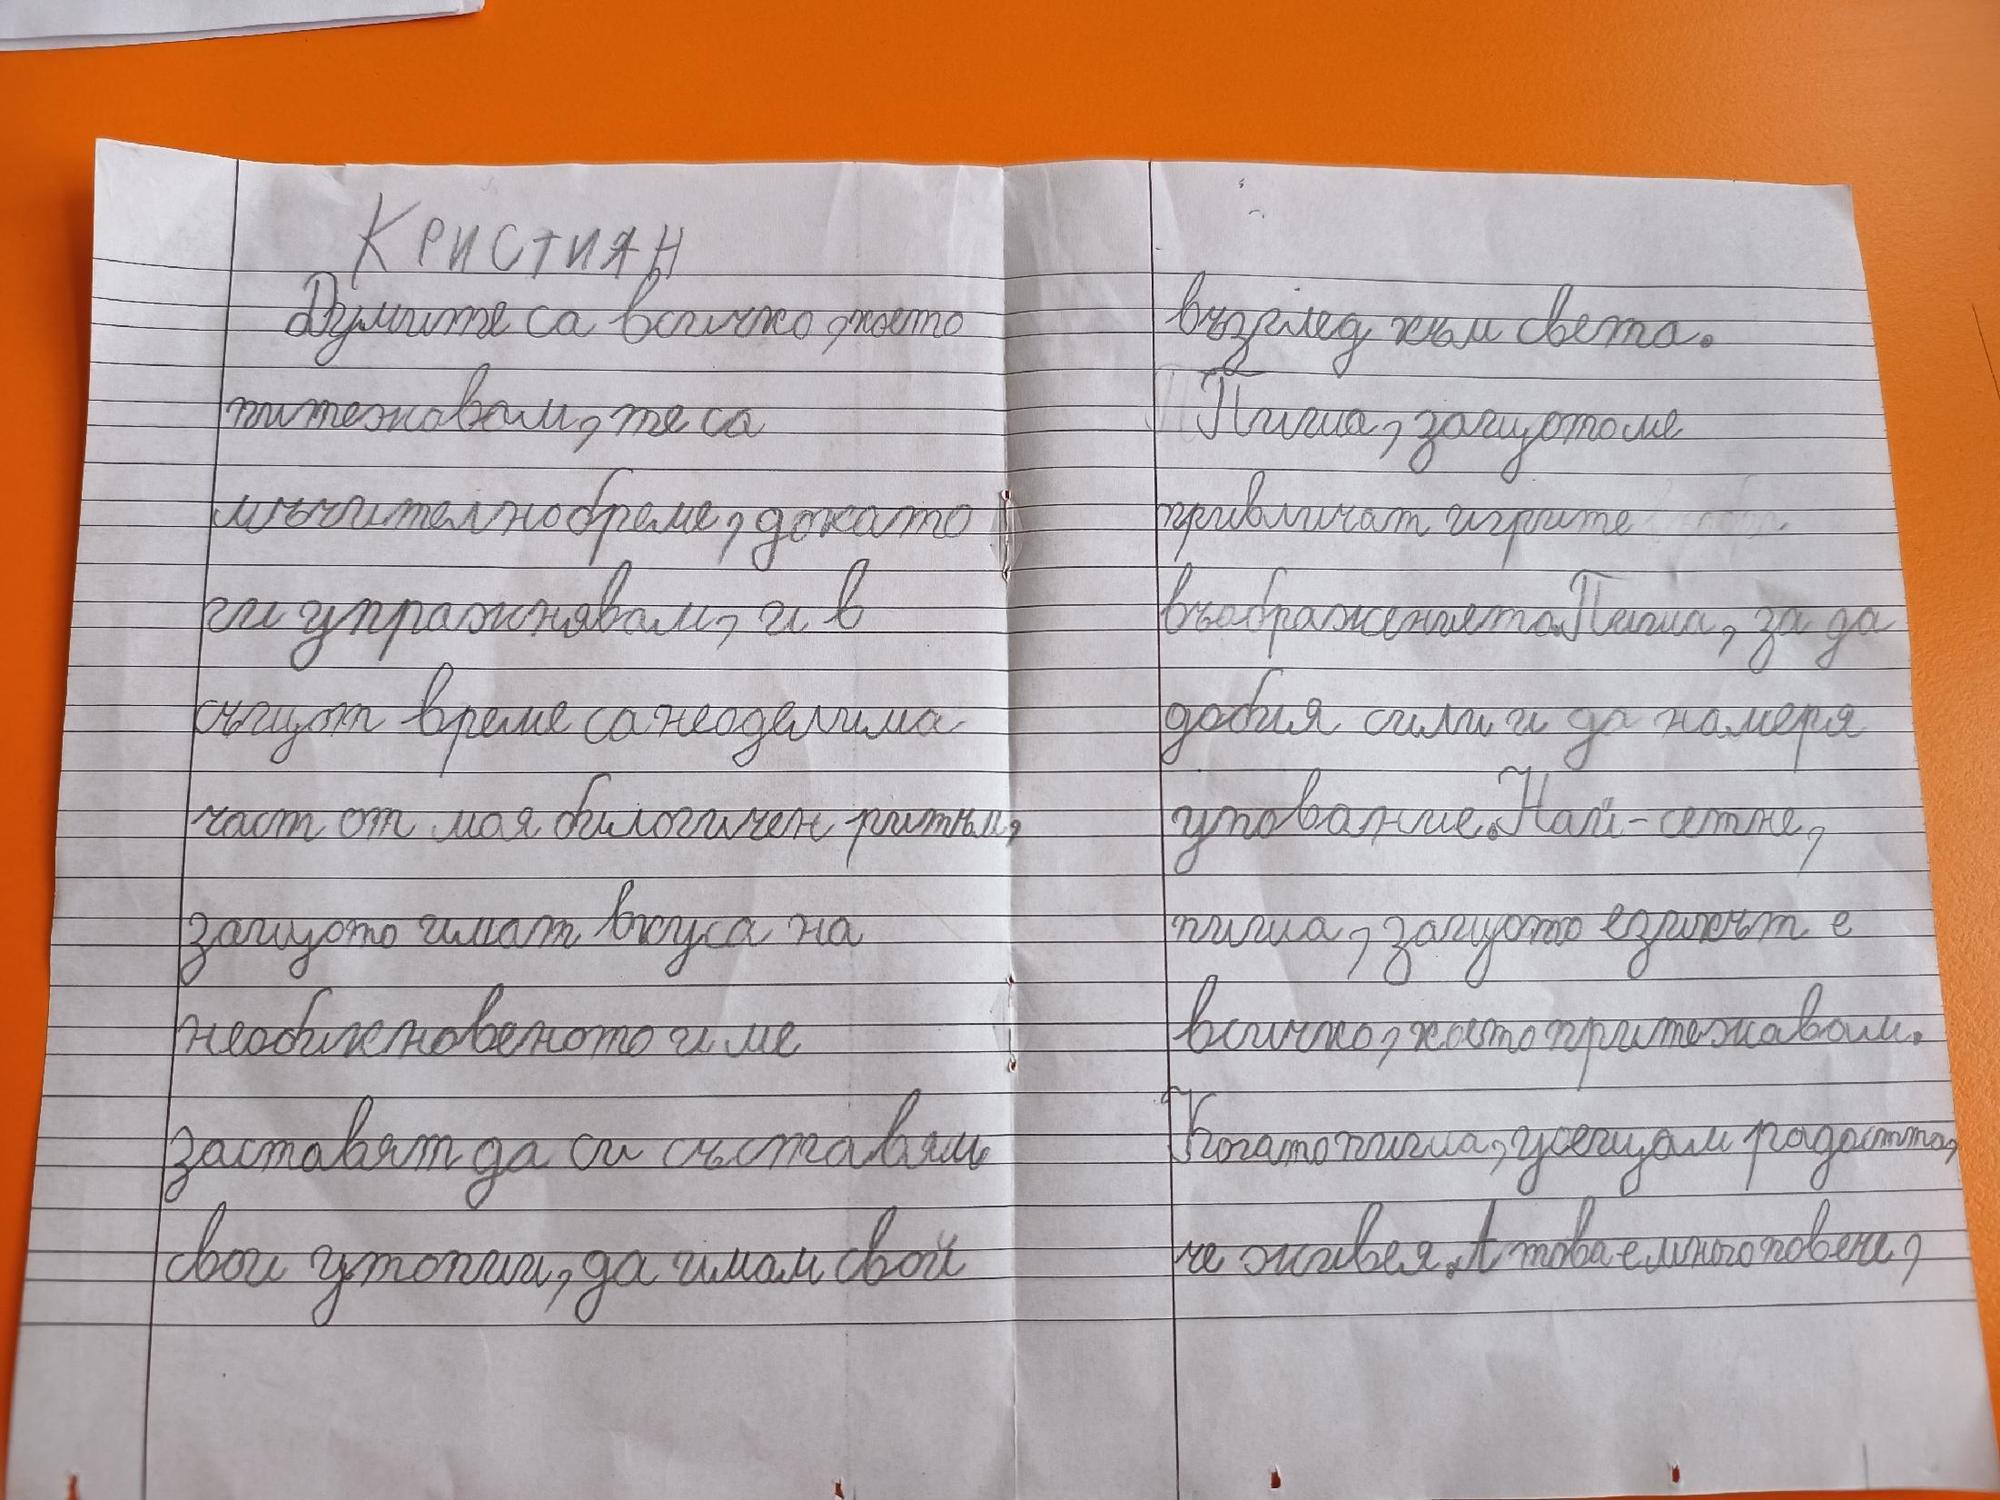 Кристиян
Думите са всичко, което
питежавам, те са
мъчително бреме, докато
ги упражнявам, и в
същот време са неоделима
част от моя билогичен ритъм,
защото имат вкуса на
необикновеното и ме
заставят да си съставям
свои утопии, да имам свой
възглед към света.
Пиша, защото ме
привличат игрите
въображението. Пиша, за да
добия сили и да намеря
упование. Най-сетне,
пиша, защото езикът е
всичко, което притежавам.
Когато пиша, усещам радостта,
че живея. А това е много повече,